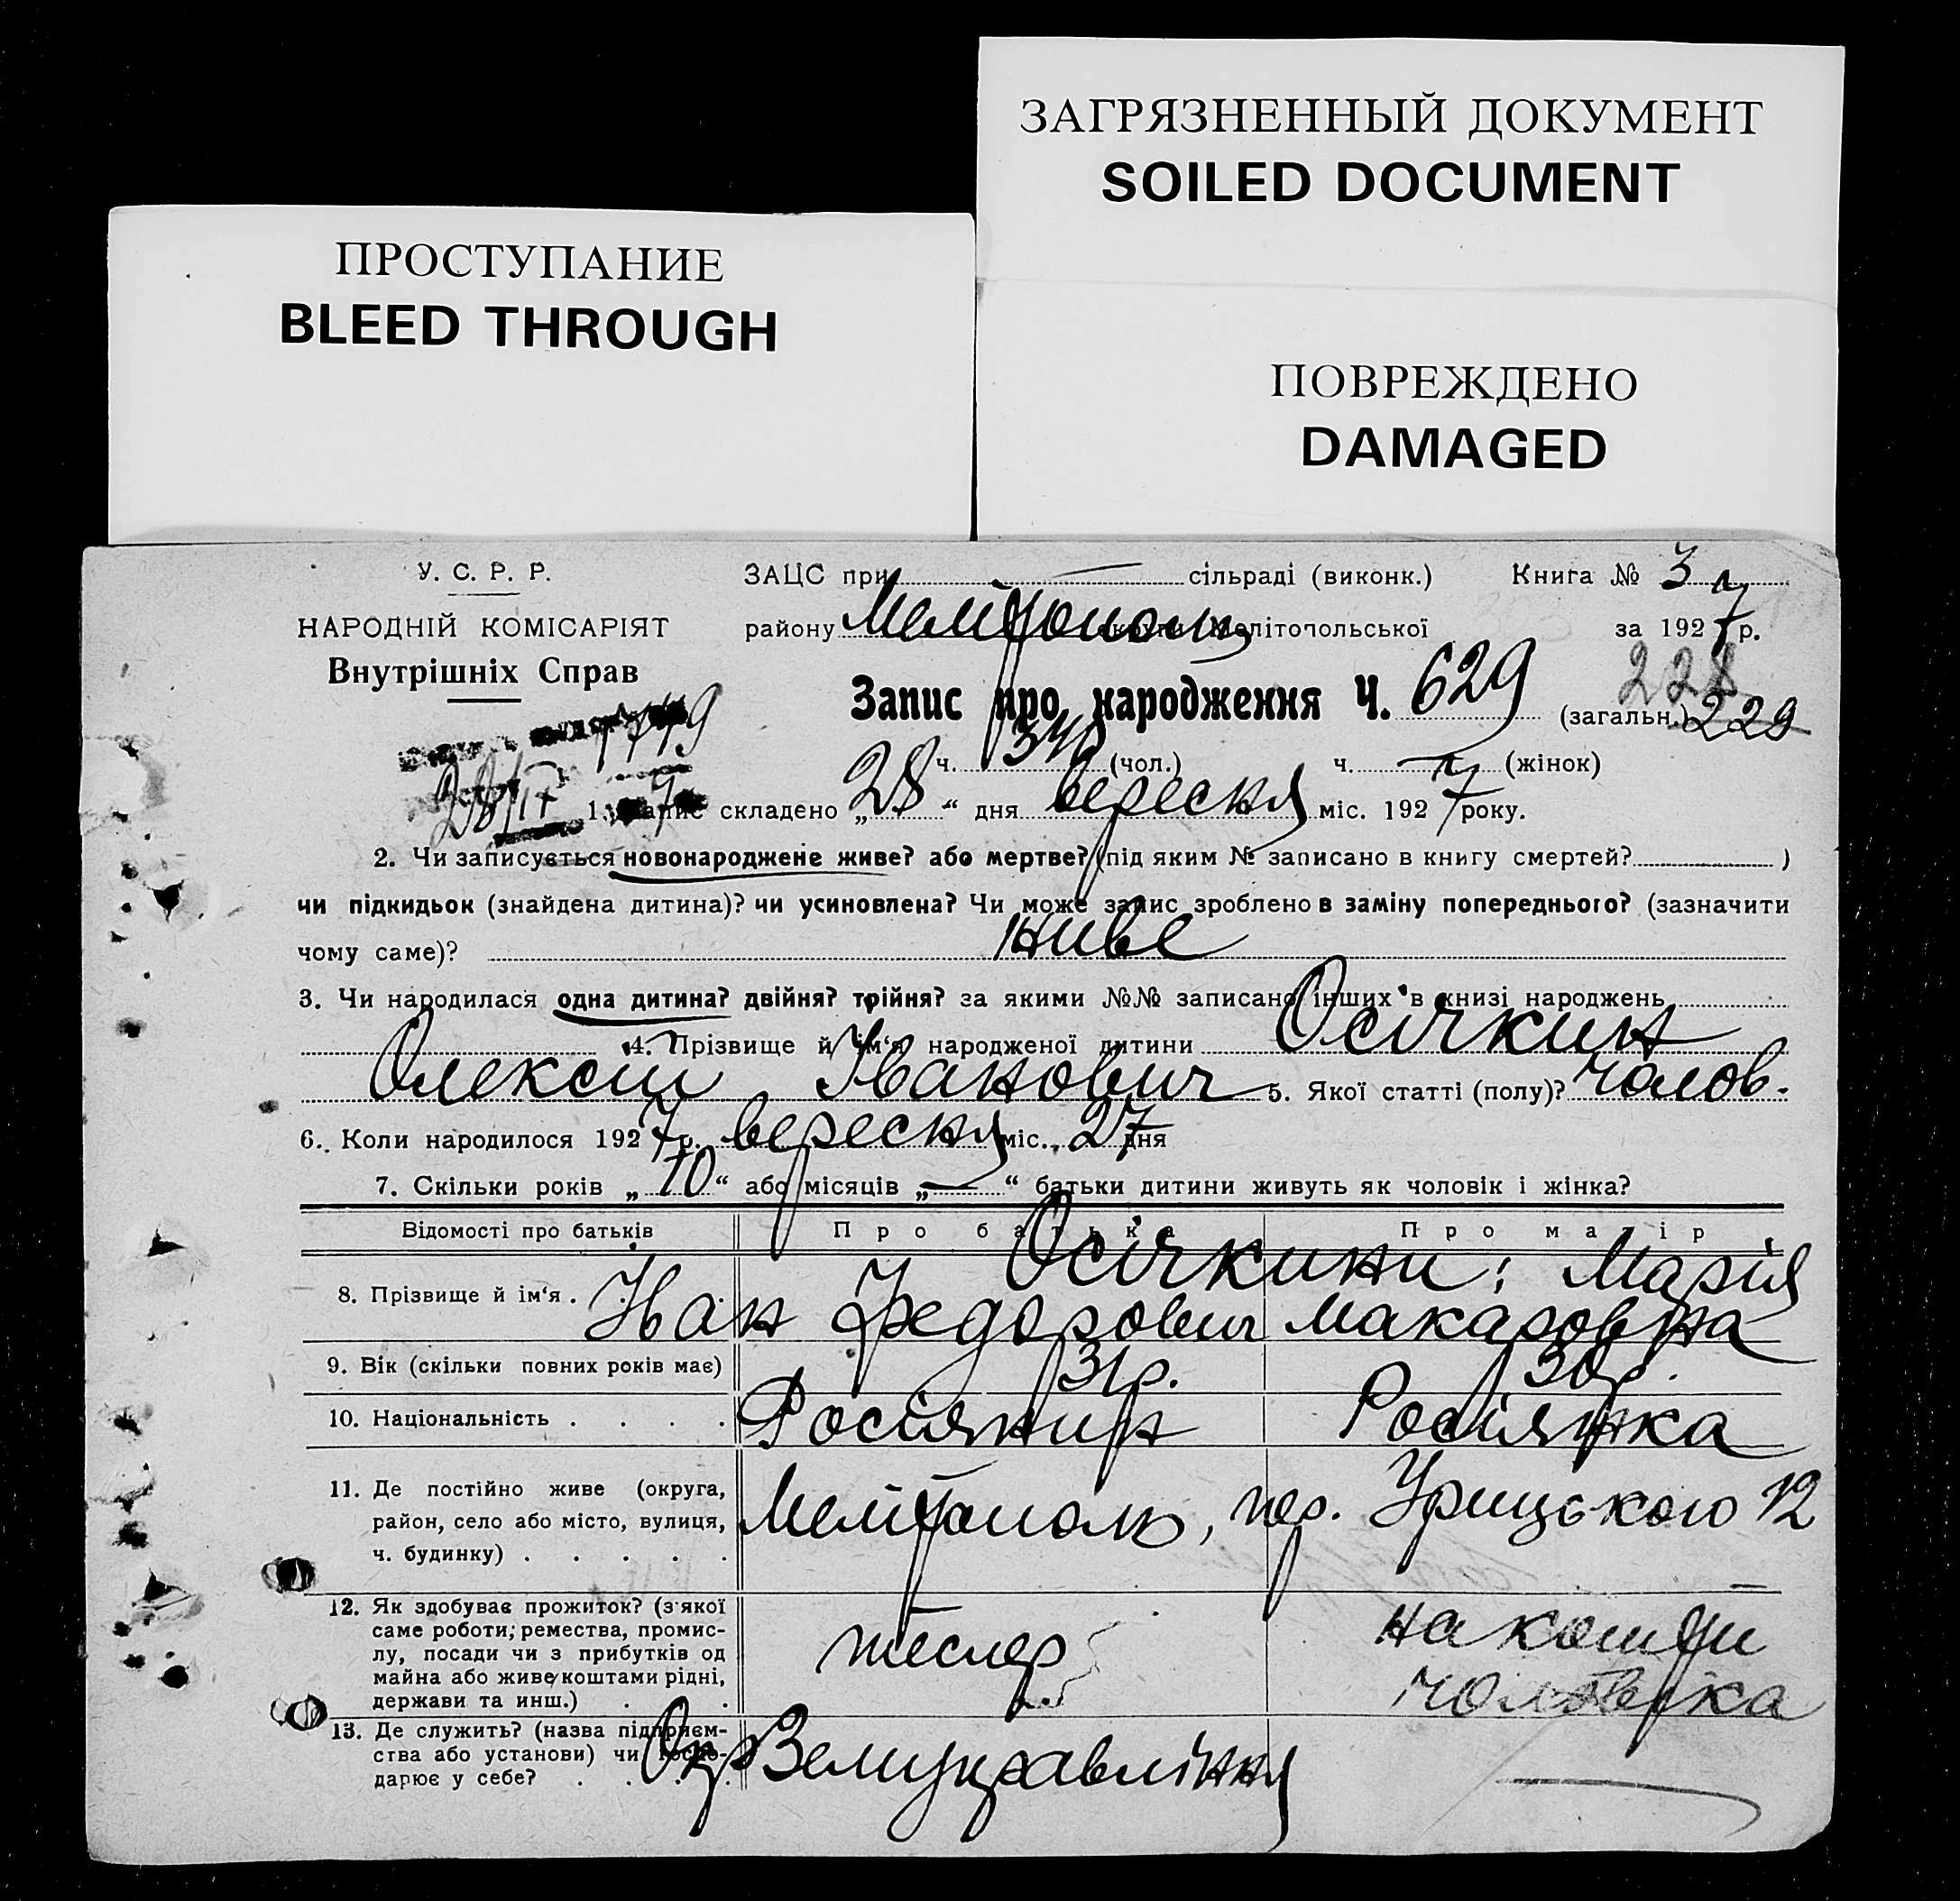 ЗАГРЯЗНЕННЫЙ ДОКУМЕНТ
SOILED DOCUMENT
ПРОСТУПАНИЕ
BLEED THROUGH
ПОВРЕЖДЕНО
DAMAGED
У. С. Р. Р.
НАРОДНІЙ КОМІСАРІЯТ
Внутрішніх Справ
ЗАЦС при — сільраді (виконк.) Книга № 3
району Мелітополь округи Мелітопольської за 1927 р.
Запис про народження Ч. 629 (загальн.) 228 229
ч. 340 (чол.) ч. (жінок)
1749
28/IX 7
1. Запис складено „28“ дня вересня міс. 1927 року.
2. Чи записується новонароджене живе? або мертве? (під яким № записано в книгу смертей? )
чи підкидьок (знайдена дитина)? чи усиновлена? Чи може запис зроблено в заміну попереднього? (зазначити
чому саме)? живе
3. Чи народилася одна дитина? двійня? трійня? за якими №№ записано інших в книзі народжень
4. Прізвище й ім‘я народженої дитини Осічкин
Олексій Іванович 5. Якої статті (полу)? чолов.
6. Коли народилося 1927 р. вересня міс. 27 дня
7. Скільки років „10“ або місяців „—“ батьки дитини живуть як чоловік і жінка?
Відомості про батьків Про батька Про матір
8. Прізвище й ім‘я . Осічкини: Марія
Іван Федорович Макаровна
9. Вік (скільки повних років має) 31 р. 30 р.
10. Національність . . . . Росіянин Росіянка
11. Де постійно живе (округа,
район, село або місто, вулиця,
ч. будинку) . . . . .
Мелітополь, пер. Урицького 12
12. Як здобуває прожиток? (з якої
саме роботи, ремества, промис-
лу, посади чи з прибутків од
майна або живе коштами рідні,
держави та инш.) . .
тесляр
на кошти
чоловіка
13. Де служить? (назва підприєм-
ства або установи) чи госпо-
дарює у себе? . . . .
ОкрЗемуправління